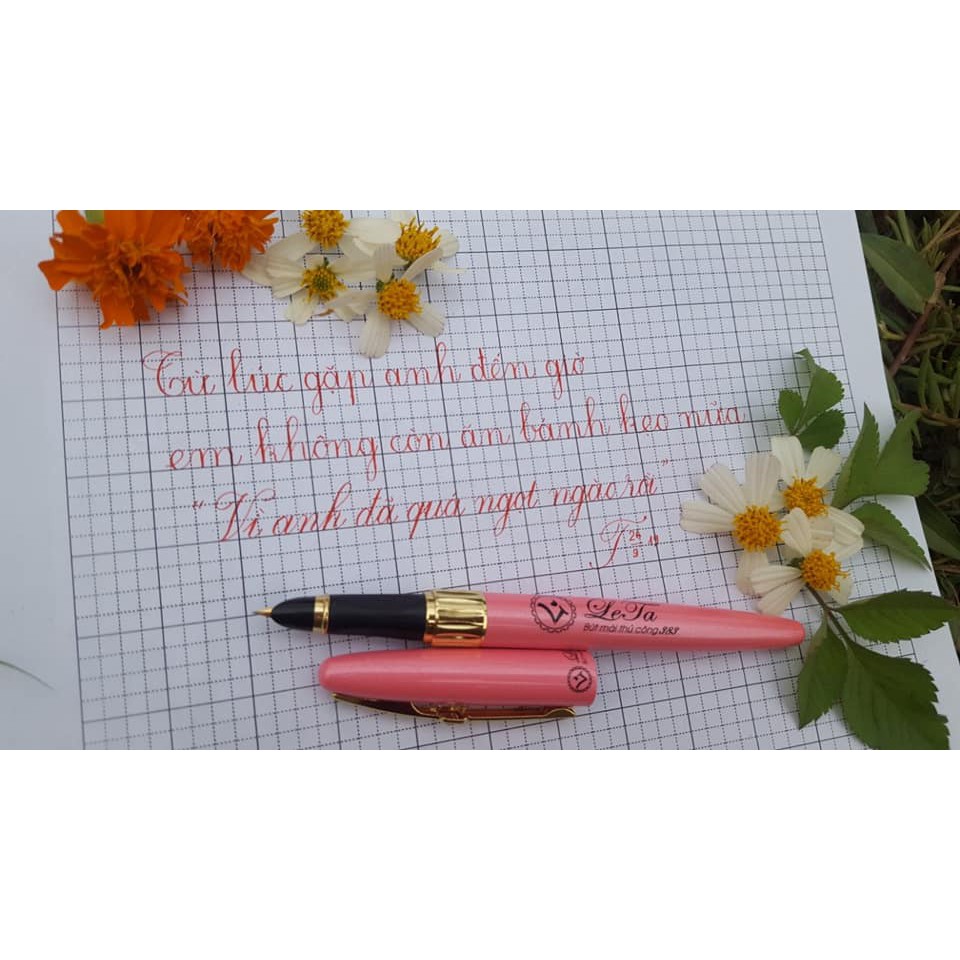 Từ lúc gặp anh đến giờ
em không còn ăn bánh kẹo nữa
"Vì anh đã quá ngọt ngào rồi"
LeTa
Bút mài thủ công 383